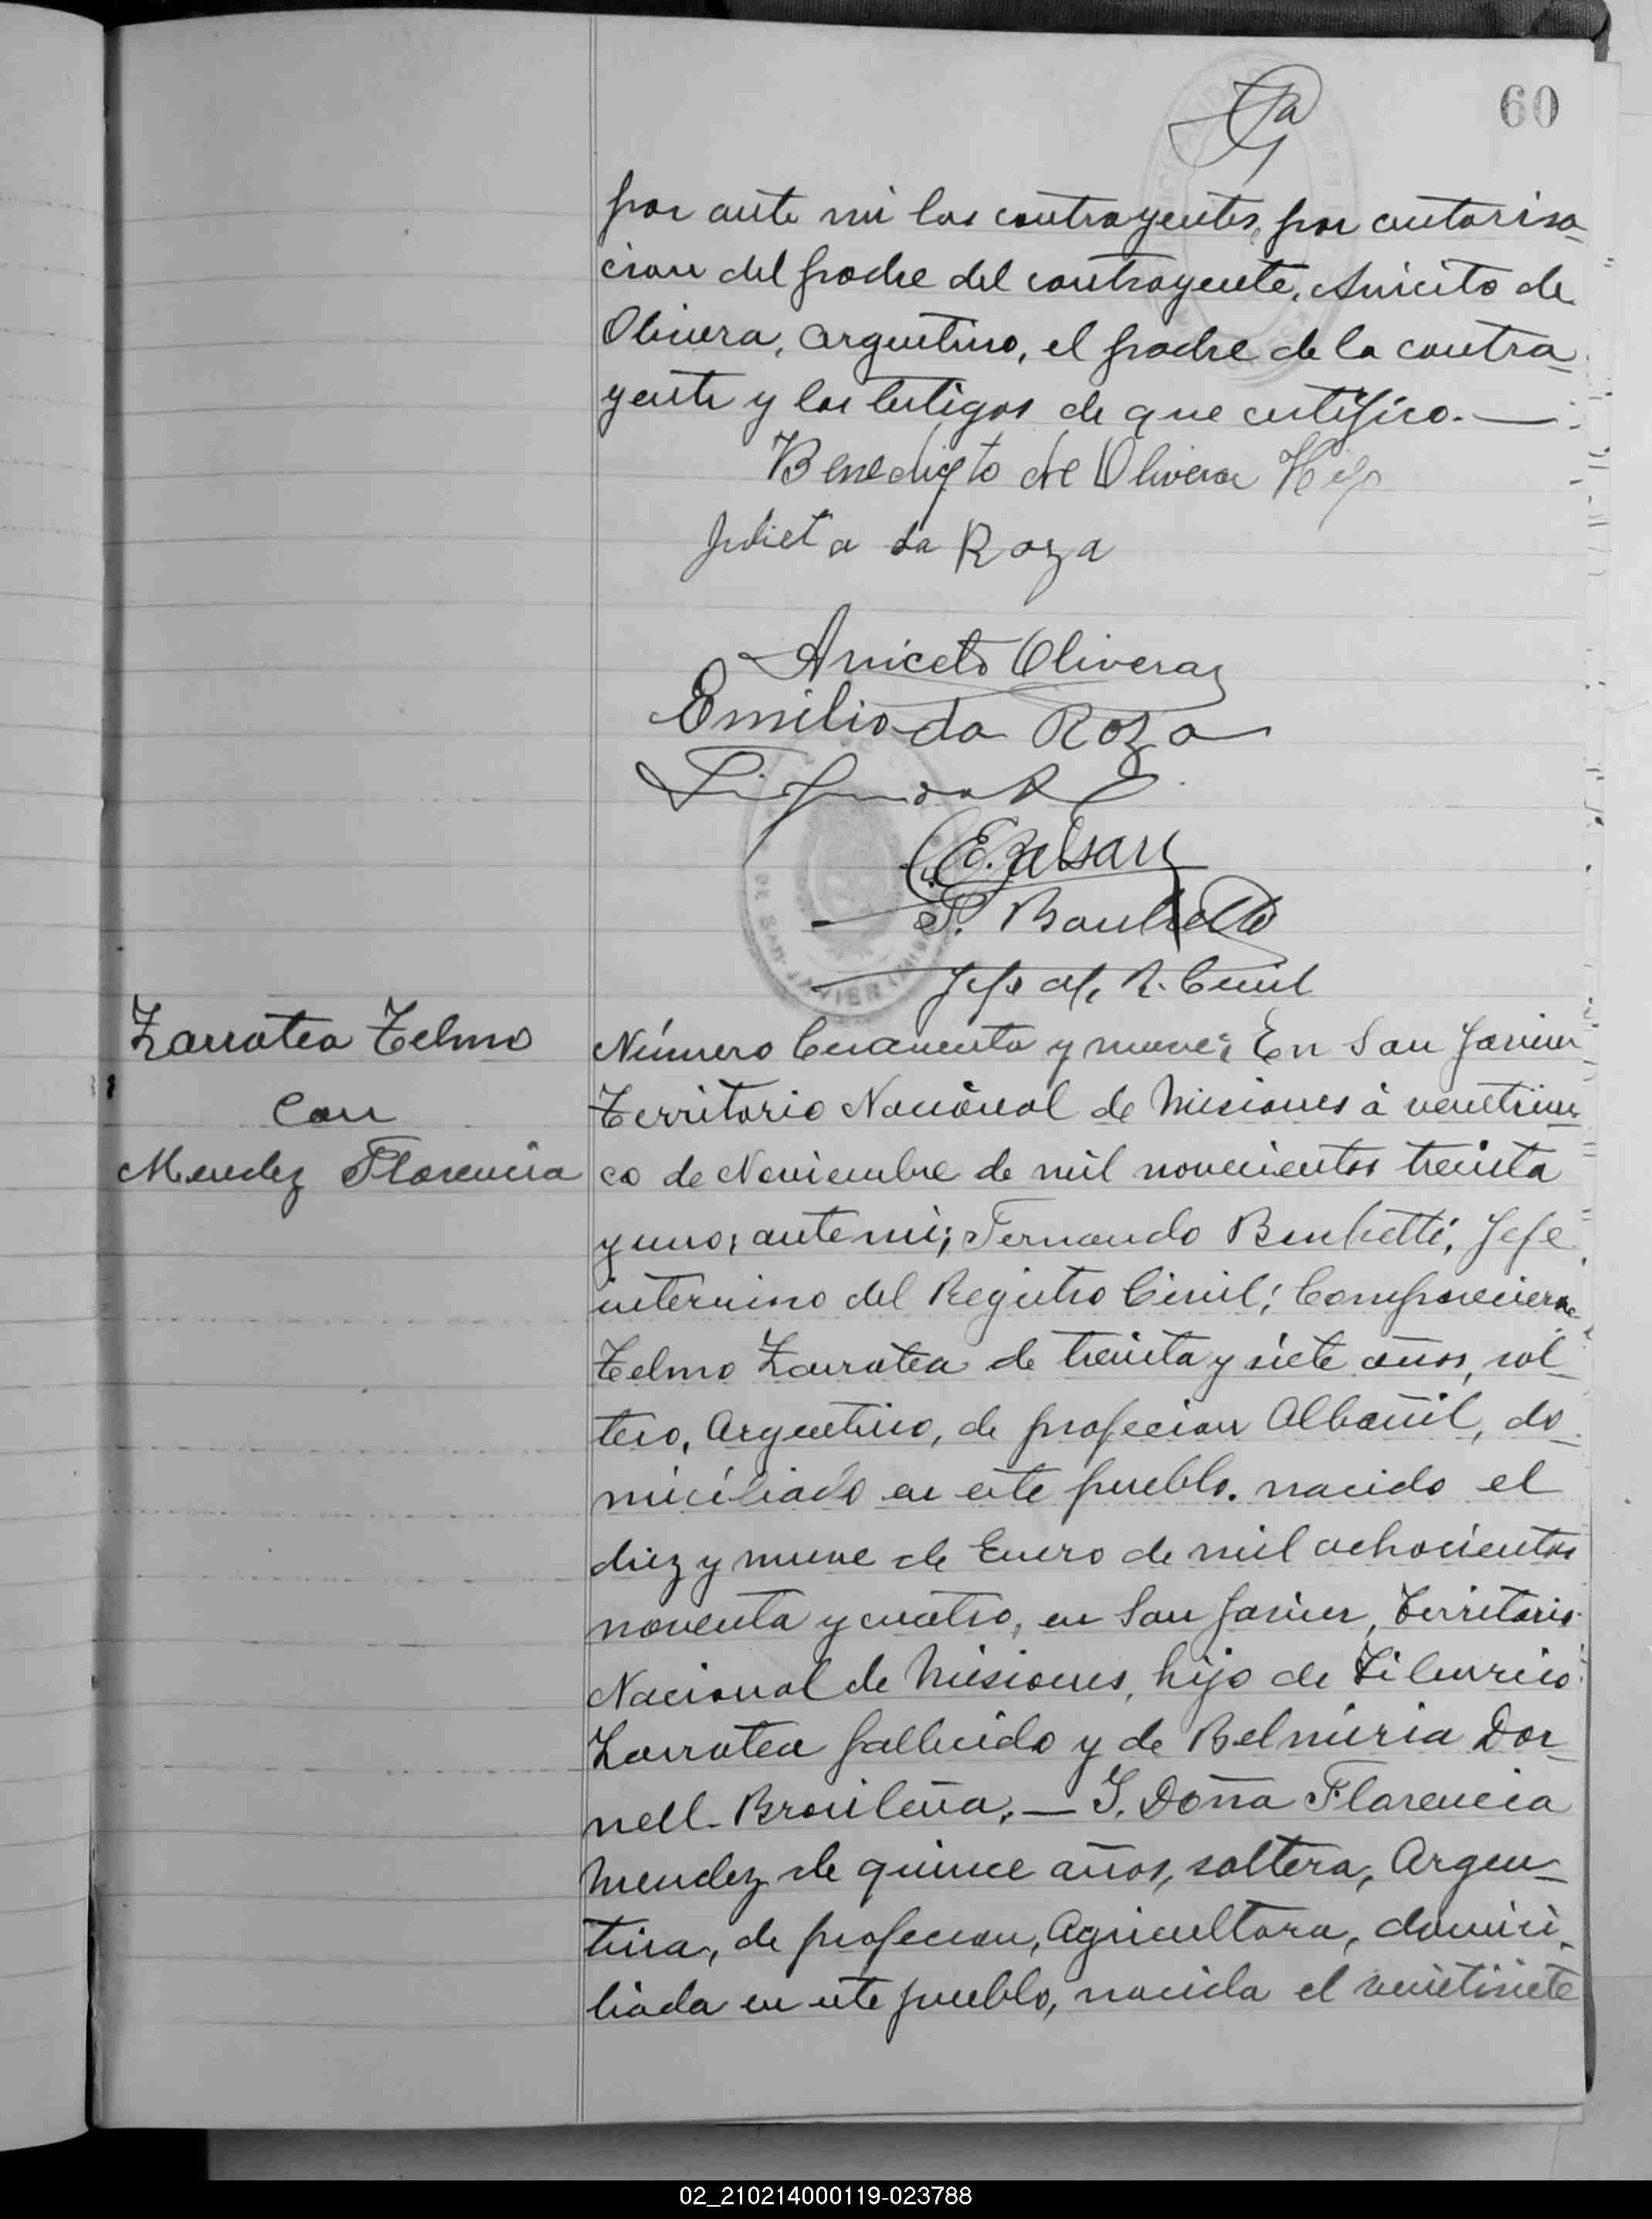 60
por ante mi los contrayentes, por autorisa-
cion del padre del contrayente, Aniceto de
Olivera, argentino, el padre de la contra-
yente y los testigos de que certifico.—
Benedicto de Olivera Hijo
Julieta da Roza
Aniceto Oliveraz
Emilio da Roza
DE SAN JAVIER
Jefe del R. Civil
Zarratea Telmo
Con
Mendez Florencia
Número Cuarenta y nueve; En San Javier
Territorio Nacional de Misiones à veinticin-
co de Noviembre de mil novecientos treinta
y uno; ante mi; Fernando Barbetti, Jefe
interino del Registro Civil; Comparecieron
Telmo Zarratea de treinta y siete años, sol-
tero, Argentino, de profecion Albañil, do-
miciliado en este pueblo. nacido el
diez y nueve de Enero de mil ochocientos
noventa y cuatro, en San Javier, Territorio
Nacional de Misiones, hijo de Tiburcio
Zarratea fallecido y de Belmiria Dor-
nell. Brasileña.— Y. Doña Florencia
Mendez de quince años, soltera, Argen-
tina, de profecion, Agricultora, domici-
liada en este pueblo, nacida el veintisiete
02_210214000119-023788